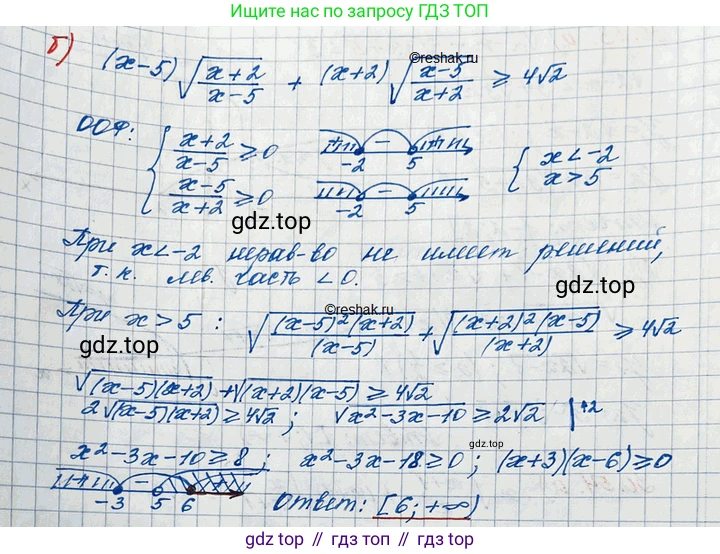 Больше решений на сайте по запросу ГДЗ ТОП
б) (x-5)√((x+2)/(x-5)) + (x+2)√((x-5)/(x+2)) ≥ 4√2
©reshak.ru
ООФ: { (x+2)/(x-5) ≥ 0 + -2 - 5 + { x<-2
(x-5)/(x+2) ≥ 0 -2 - 5 x>5
gdz.top
При x<-2 нерав-во не имеет решений,
т.к. лев. часть <0.
gdz.top
©reshak.ru
При x>5 : √((x-5)²(x+2)/(x-5)) + √((x+2)²(x-5)/(x+2)) ≥ 4√2
gdz.top
√((x-5)(x+2)) + √((x+2)(x-5)) ≥ 4√2
2√((x-5)(x+2)) ≥ 4√2; √(x²-3x-10) ≥ 2√2 |↑2
gdz.top
x²-3x-10≥8; x²-3x-18≥0; (x+3)(x-6)≥0
-3 - 5 6 Ответ: [6; +∞)
gdz.top
Ещё больше ГДЗ на gdz.top //↗↗//↗↗//